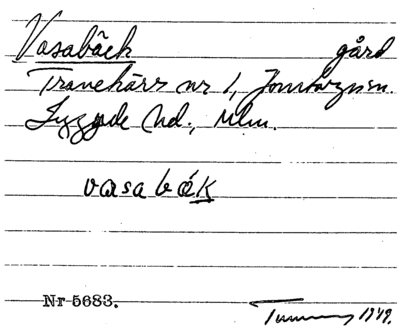 Vasabäck gård
Tranekärr nr 1, Jonstorps sn.
Luggude hd., Mlm.
vasabäk
Nr 5683.
1949.